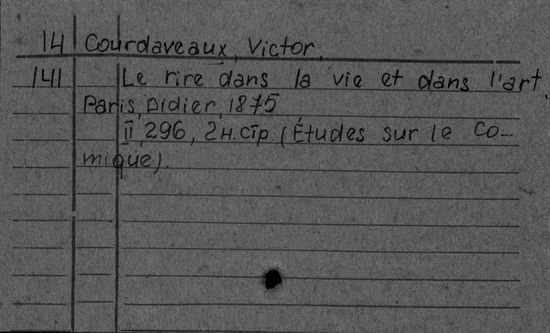 14 Courdaveaux, Victor.
141 Le rire dans la vie et dans l'art.
Paris, Didier, 1875
II, 296, 2н.стр. (Études sur le co-
mique).